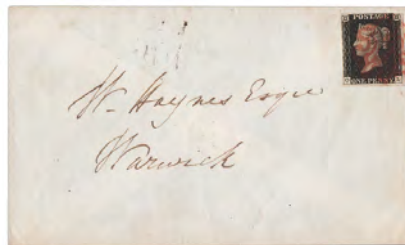 POSTAGE
ONE PENNY
Wm Haynes Esqre
Warwick